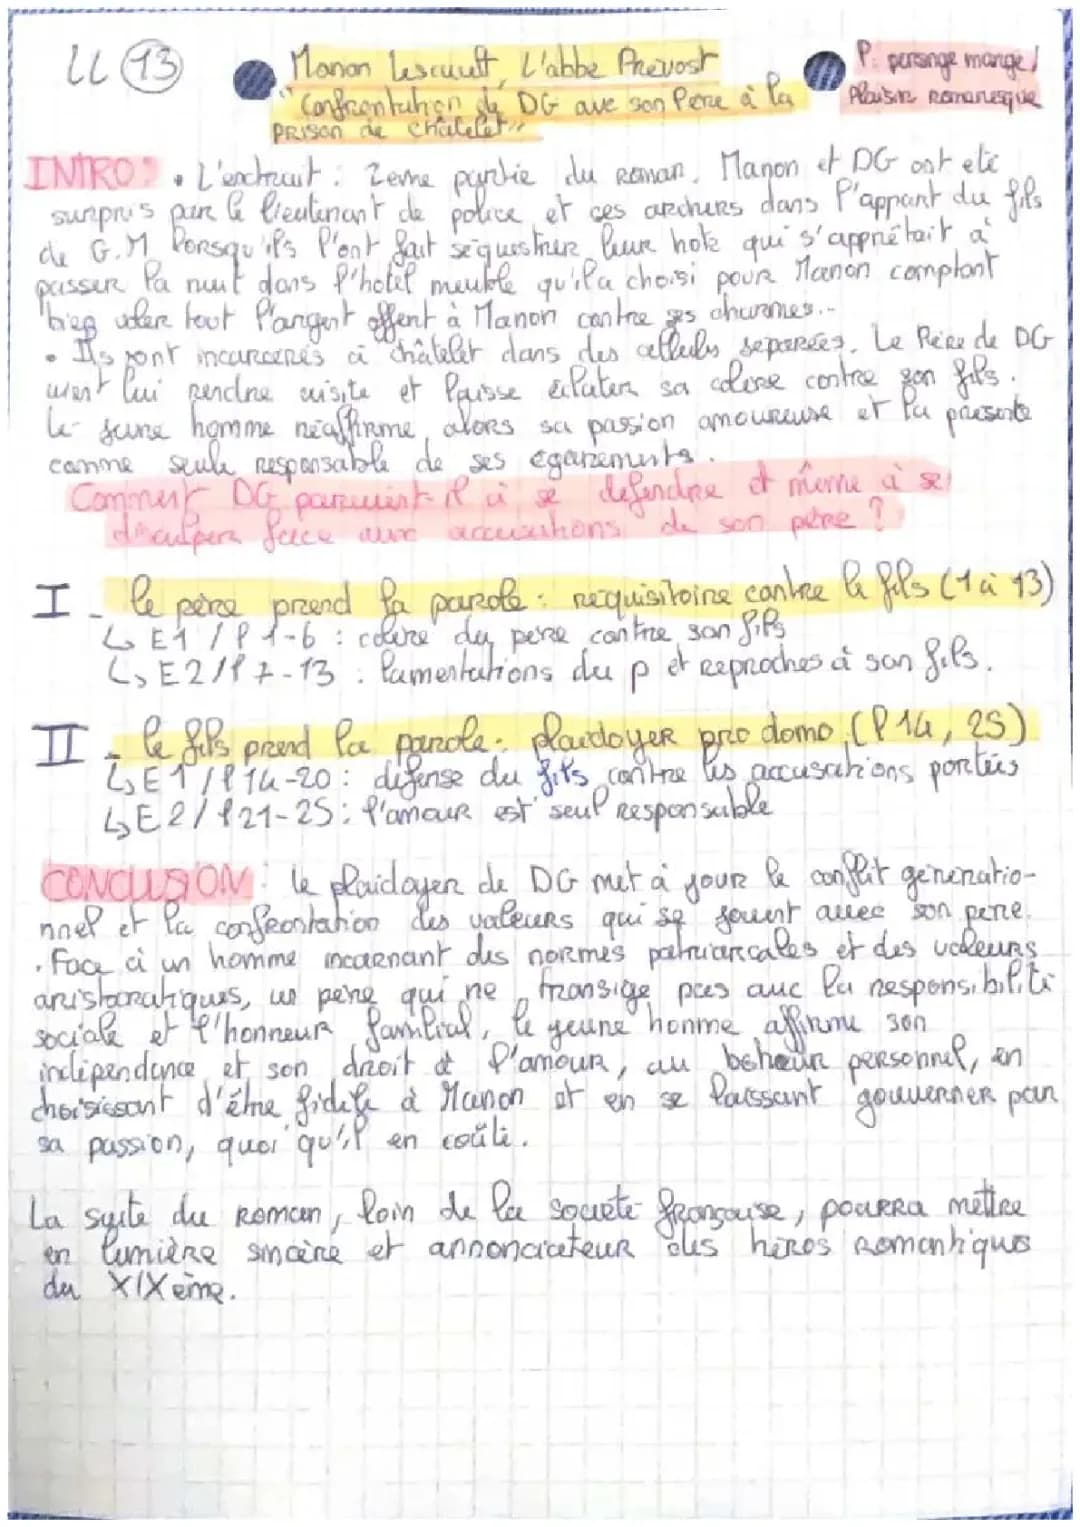 LL 13
Manon Lescault, L'abbé Prévost
"Confrontation de DG ave son Père à la
PRISON de châtelet"
P: personge marge /
Plaisir Romanesque
INTRO: • L'extrait : 2eme partie du roman. Manon et DG ont eté
surpris par le lieutenant de police et ces archers dans l'appart du fils
de G.M lorsqu'ils l'ont fait séquestrer leur hote qui s'apprêtait à
passer la nuit dans l'hotel meublé qu'il a choisi pour Manon comptant
bien voler tout l'argent offert à Manon contre ses charmes...
• Ils sont incarcerés à châtelet dans des cellules separées. Le Père de DG
vient lui rendre visite et laisse éclater sa colère contre son fils.
Le jeune homme réaffirme alors sa passion amoureuse et la presente
comme seule responsable de ses égarements.
Comment DG parvient-il à se defendre et même à se
disculper face aux accusations de son père ?
I - le père prend la parole : requisitoire contre le fils (1 à 13)
↳ E1 / l 1-6 : colère du père contre son fils
↳ E2 / l 7-13 : lamentations du p et reproches à son fils.
II - le fils prend la parole : plaidoyer pro domo (l 14, 25)
↳ E1 / l 14-20 : défense du fils contre les accusations portées
↳ E2 / l 21-25 : l'amour est seul responsable
CONCLUSION : le plaidoyer de DG met à jour le conflit génératio-
nnel et la confrontation des valeurs qui se jouent avec son père.
. Face à un homme incarnant des normes patriarcales et des valeurs
aristocratiques, un père qui ne transige pas avec la responsibilité
sociale et l'honneur familial, le jeune homme affirme son
indépendance et son droit à l'amour, au bonheur personnel, en
choisissant d'être fidèle à Manon et en se laissant gouverner par
sa passion, quoi qu'il en coûte.
La suite du roman, loin de la societé française, pourra mettre
en lumière sincère et annonciateur des héros romantiques
du XIXème.